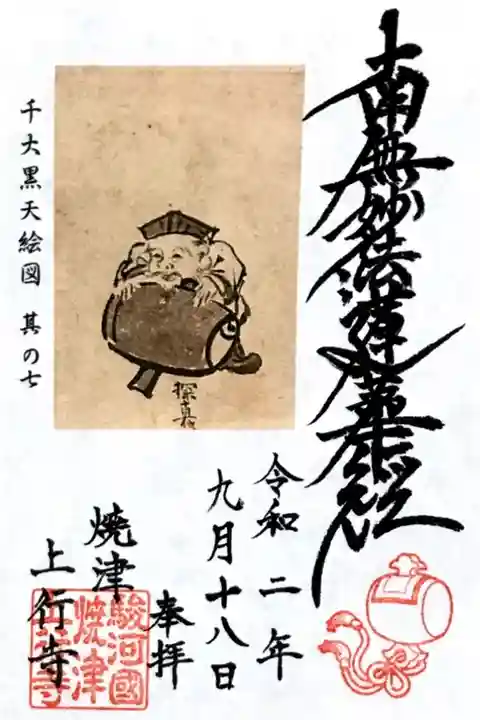 南無妙法
千大黒天絵図 其の七
探真
令和二年
九月十八日
奉拝
焼津
上行寺
駿河國
焼津
上行寺